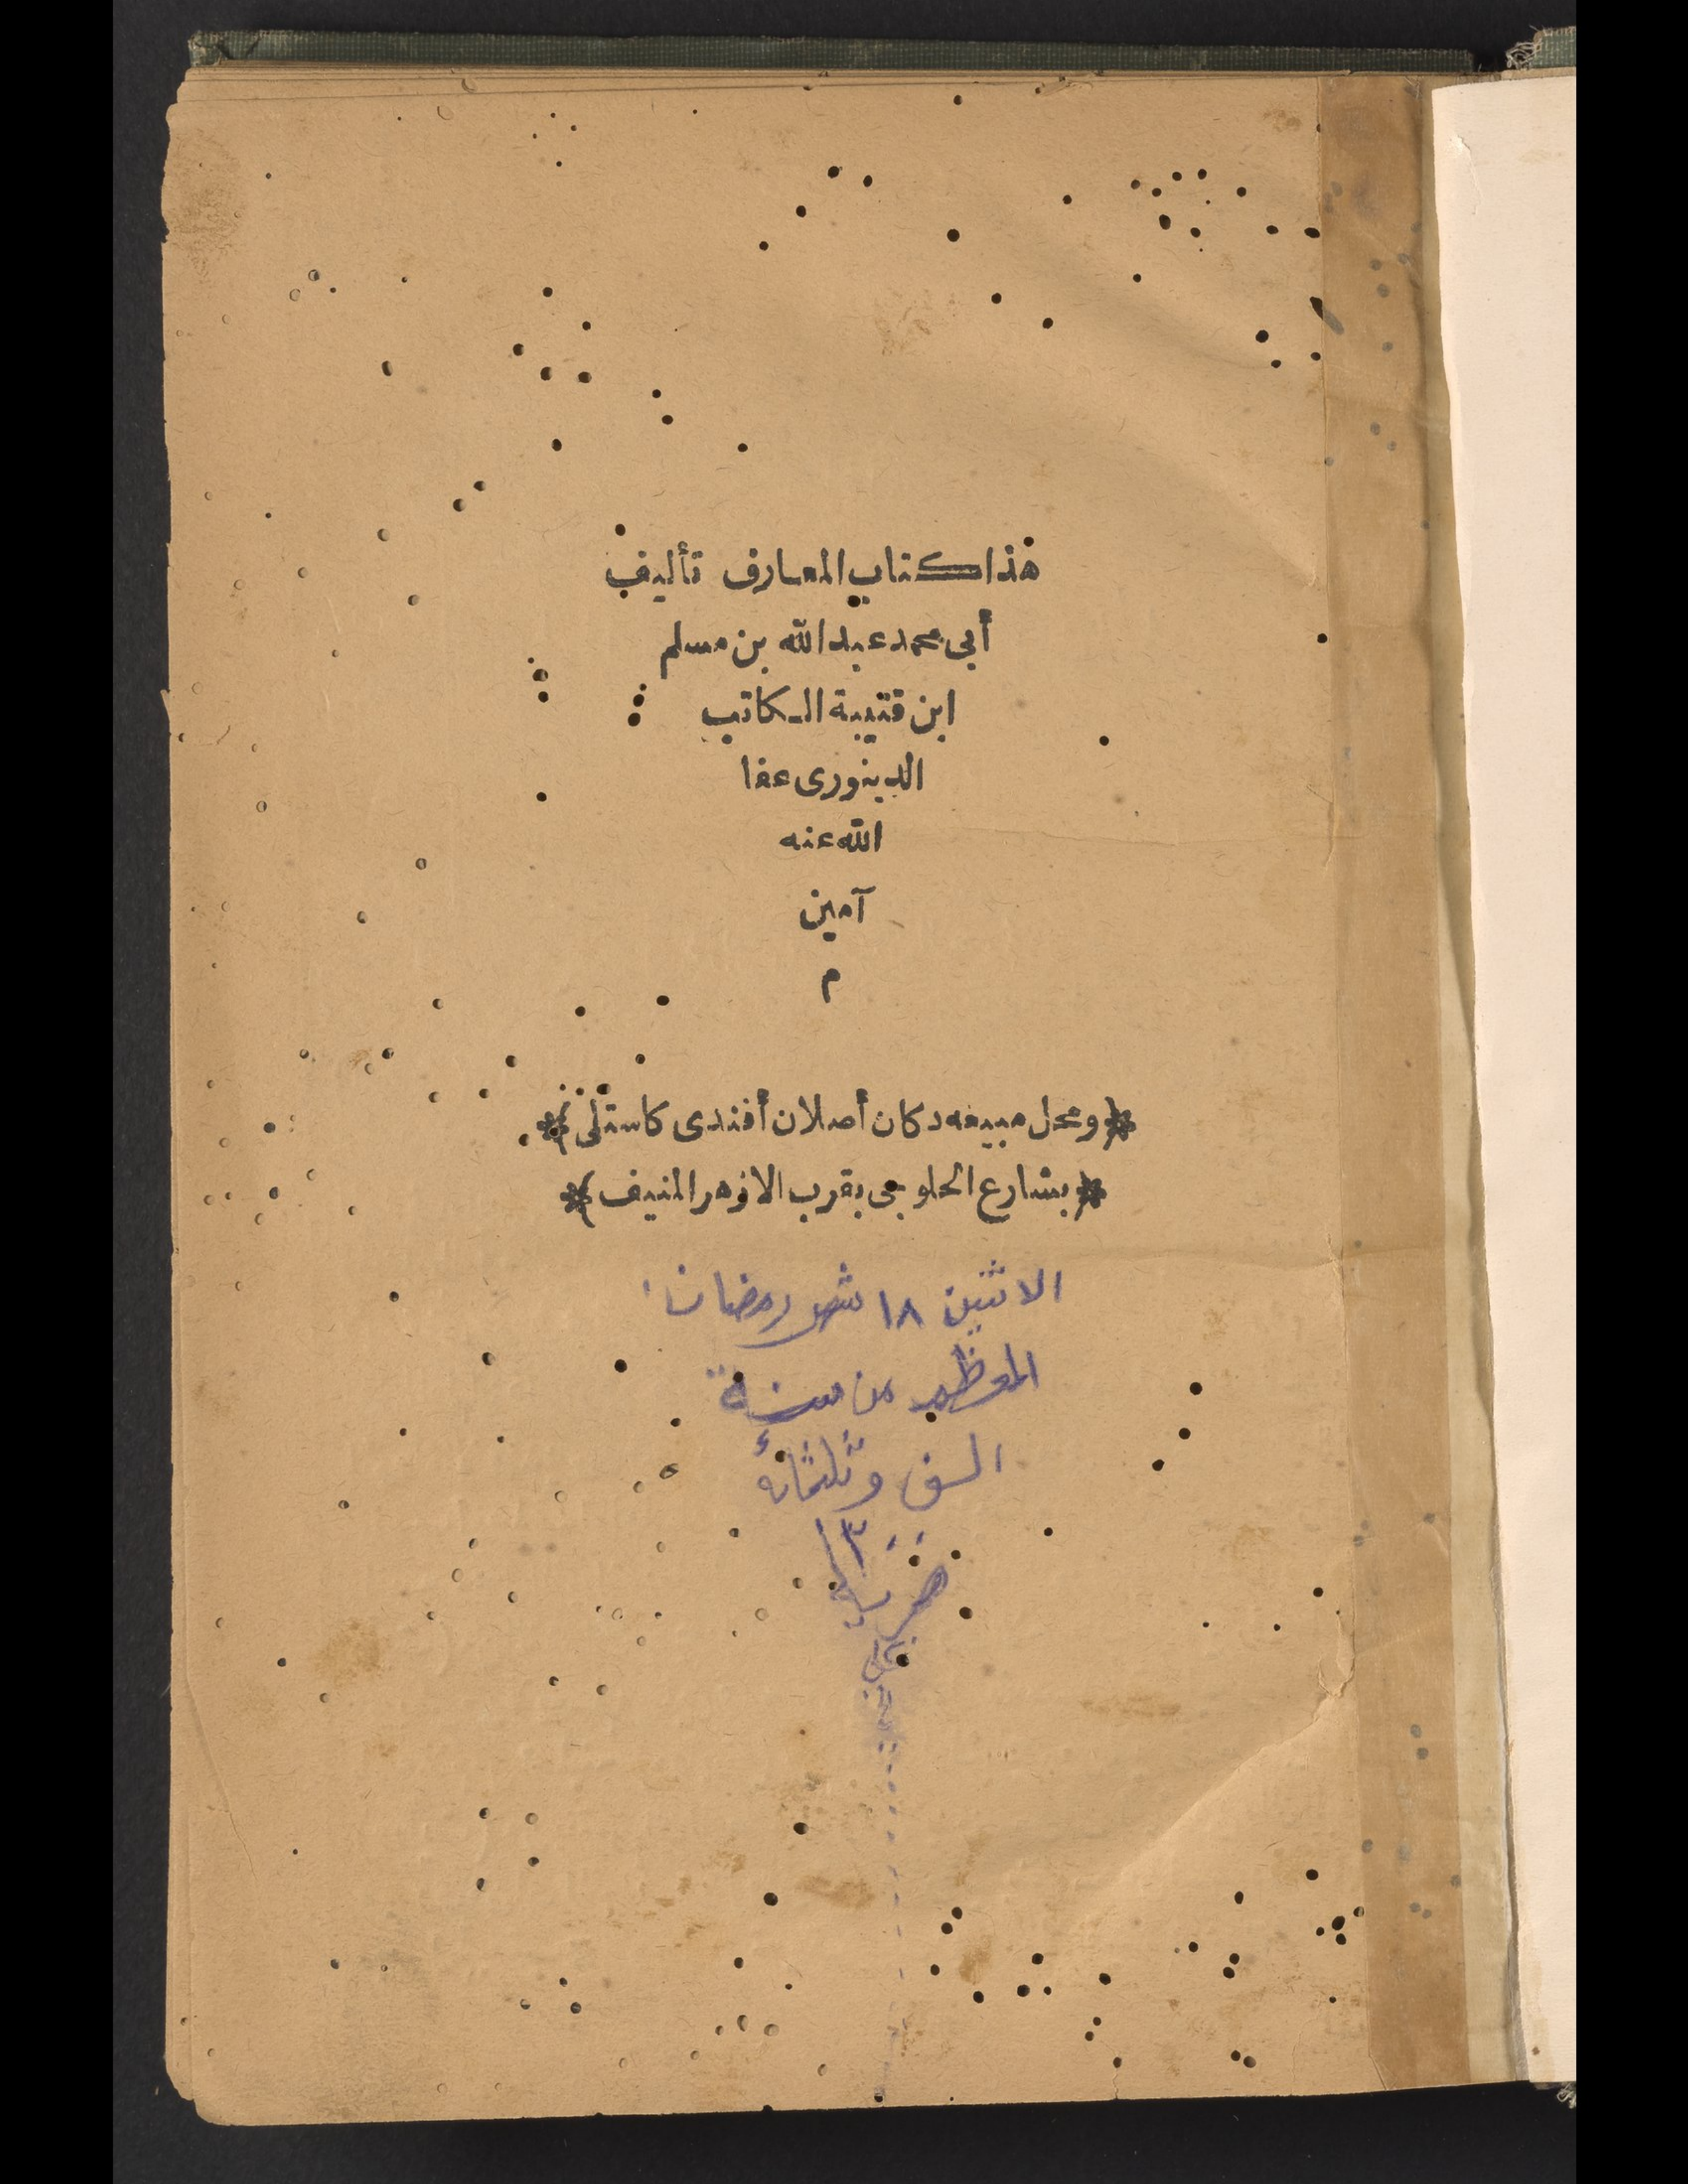 هذا كتاب المعارف تأليف
أبى محمد عبد الله بن مسلم
ابن قتيبة الكاتب
الدينورى عفا
الله عنه
آمين
م
* ومحل مبيعه دكان أصلان أفندى كاستلى *
* بشارع الحلوجى بقرب الازهر المنيف *
الاثنين ١٨ شهر رمضان
المعظم من سنة
الف وثلثمائة
١٣٠٠